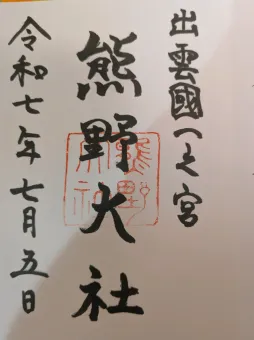 出雲國一之宮
熊野大社
令和七年七月五日